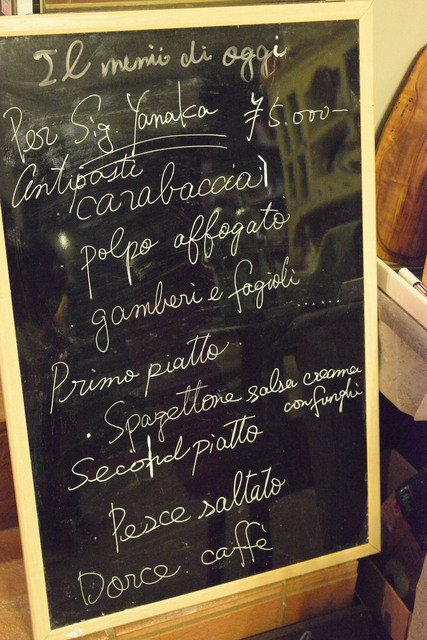 Il menù di oggi
Per Sig. Yanaka ¥5.000-
Antipasti
· carabaccia
· polpo affogato
· gamberi e fagioli
......
Primo piatto
· Spagettone salsa creama
con funghi
Second piatto
· Pesce saltato
Dorce. caffè